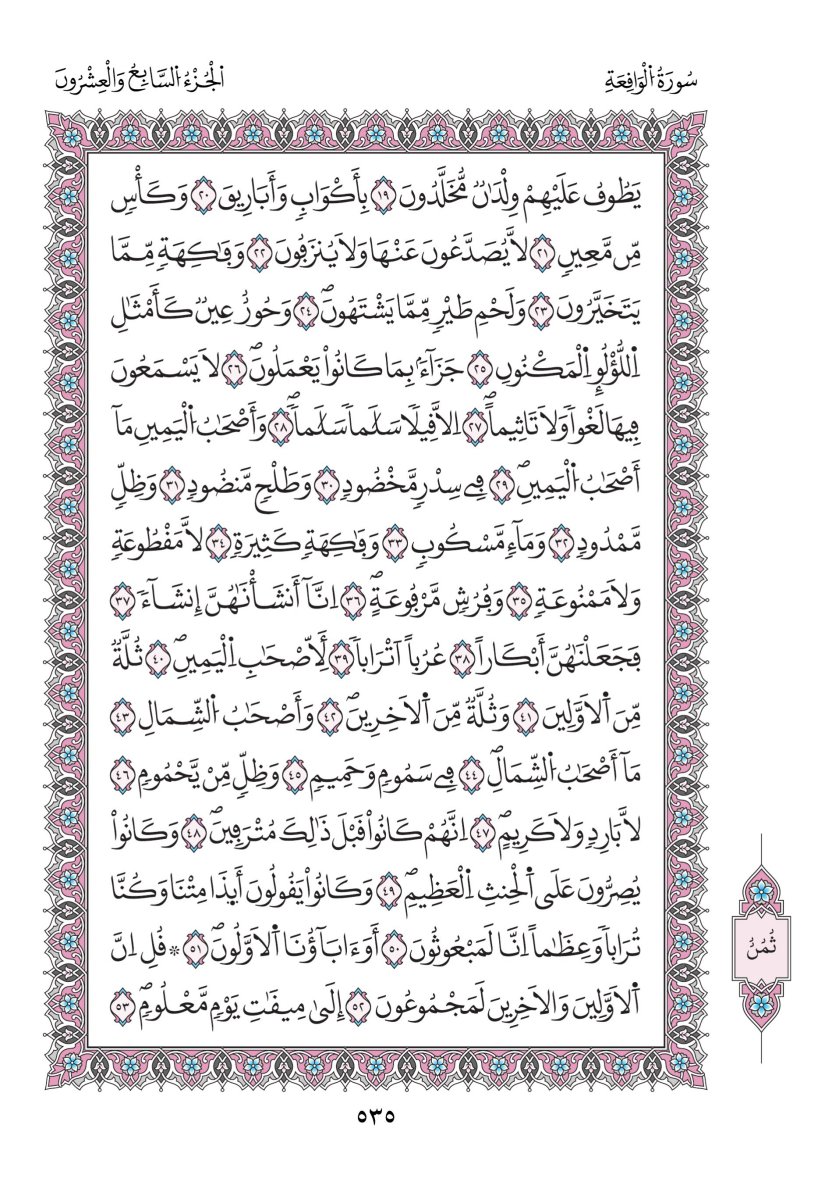 سُورَةُ اُ۬لْوَاقِعَةِ
اَ۬لْجُزْءُ اُ۬لسَّابِعُ وَالْعِشْرُونَ
يَطُوفُ عَلَيْهِمْ وِلْدَٰنٞ مُّخَلَّدُونَ ١٩ بِأَكْوَابٖ وَأَبَارِيقَ ٢٠ وَكَأْسٖ
مِّن مَّعِينٖ ٢١ لَّا يُصَدَّعُونَ عَنْهَا وَلَا يُنزَفُونَ ٢٢ وَفَٰكِهَةٖ مِّمَّا
يَتَخَيَّرُونَ ٢٣ وَلَحْمِ طَيْرٖ مِّمَّا يَشْتَهُونَۖ ٢٤ وَحُورٌ عِينٞ كَأَمْثَٰلِ
اِ۬للُّؤْلُوِٕ اِ۬لْمَكْنُونِ ٢٥ جَزَآءَۢ بِمَا كَانُواْ يَعْمَلُونَۖ ٢٦ لَا يَسْمَعُونَ
فِيهَا لَغْواٗ وَلَا تَاثِيماًۖ ٢٧ اِلَّا قِيلاٗ سَلَٰماٗ سَلَٰماٗۖ ٢٨ وَأَصْحَٰبُ اُ۬لْيَمِينِ مَآ
أَصْحَٰبُ اُ۬لْيَمِينِۖ ٢٩ فِے سِدْرٖ مَّخْضُودٖ ٣٠ وَطَلْحٖ مَّنضُودٖ ٣١ وَظِلّٖ
مَّمْدُودٖ ٣٢ وَمَآءٖ مَّسْكُوبٖ ٣٣ وَفَٰكِهَةٖ كَثِيرَةٖ ٣٤ لَّا مَقْطُوعَةٖ
وَلَا مَمْنُوعَةٖ ٣٥ وَفُرُشٖ مَّرْفُوعَةٍۖ ٣٦ اِنَّآ أَنشَأْنَٰهُنَّ إِنشَآءٗ ٣٧
فَجَعَلْنَٰهُنَّ أَبْكَاراً ٣٨ عُرُباً اَتْرَاباٗ ٣٩ لِّأَصْحَٰبِ اِ۬لْيَمِينِۖ ٤٠ ثُلَّةٞ
مِّنَ اَ۬لَاوَّلِينَ ٤١ وَثُلَّةٞ مِّنَ اَ۬لَاخِرِينَۖ ٤٢ وَأَصْحَٰبُ اُ۬لشِّمَالِ ٤٣
مَآ أَصْحَٰبُ اُ۬لشِّمَالِۖ ٤٤ فِے سَمُومٖ وَحَمِيمٖ ٤٥ وَظِلّٖ مِّنْ يَّحْمُومٖ ٤٦
لَّا بَارِدٖ وَلَا كَرِيمٍۖ ٤٧ اِنَّهُمْ كَانُواْ قَبْلَ ذَٰلِكَ مُتْرَفِينَۖ ٤٨ وَكَانُواْ
يُصِرُّونَ عَلَى اَ۬لْحِنثِ اِ۬لْعَظِيمِۖ ٤٩ وَكَانُواْ يَقُولُونَ أَئِذَا مِتْنَا وَكُنَّا
تُرَاباٗ وَعِظَٰماً اِنَّا لَمَبْعُوثُونَ ٥٠ أَوَءَابَآؤُنَا اَ۬لَاوَّلُونَۖ ٥١ ۞ قُلِ اِنَّ
اَ۬لَاوَّلِينَ وَالَاخِرِينَ لَمَجْمُوعُونَ ٥٢ إِلَىٰ مِيقَٰتِ يَوْمٖ مَّعْلُومٖۖ ٥٣
ثُمُنُ
٥٣٥